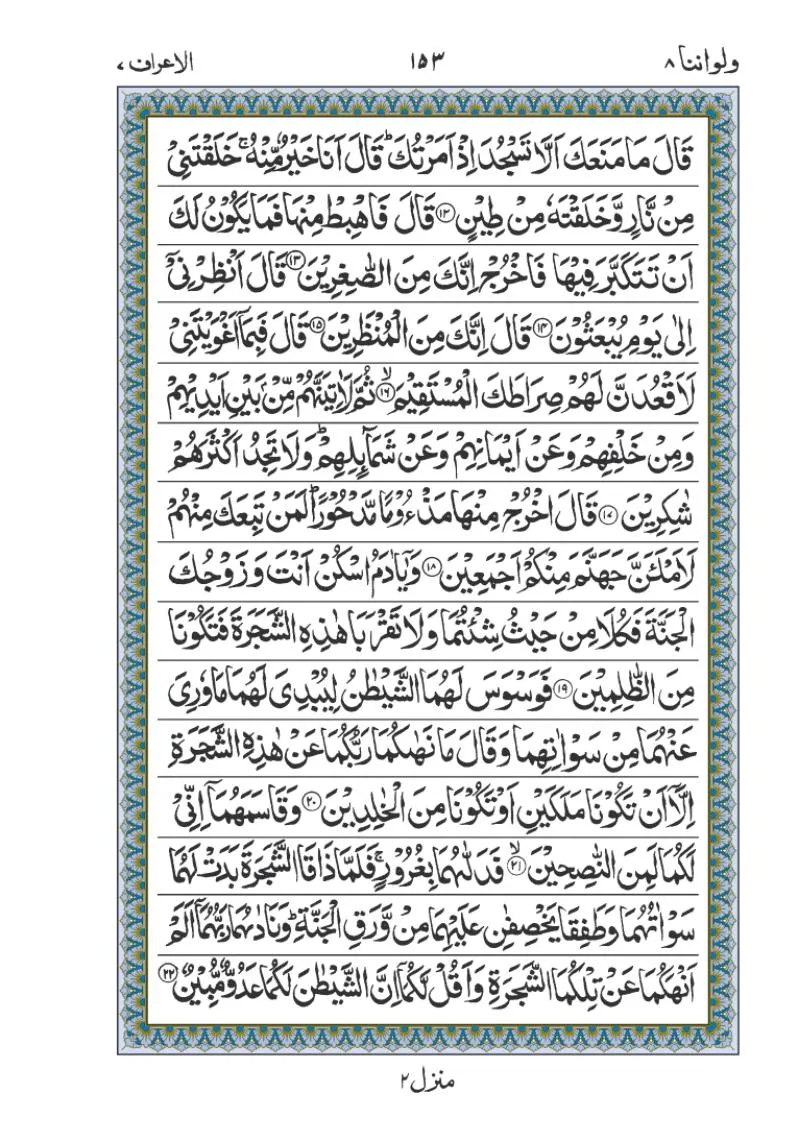 ولواننا ٨ ١٥٣ الاعراف ٧
قَالَ مَا مَنَعَكَ اَلَّا تَسْجُدَ اِذْ اَمَرْتُكَ ؕ قَالَ اَنَا خَيْرٌ مِّنْهُ ۚ خَلَقْتَنِيْ
مِنْ نَّارٍ وَّ خَلَقْتَهٗ مِنْ طِيْنٍ ۝۱۲ قَالَ فَاهْبِطْ مِنْهَا فَمَا يَكُوْنُ لَكَ
اَنْ تَتَكَبَّرَ فِيْهَا فَاخْرُجْ اِنَّكَ مِنَ الصّٰغِرِيْنَ ۝۱۳ قَالَ اَنْظِرْنِيْۤ
اِلٰى يَوْمِ يُبْعَثُوْنَ ۝۱۴ قَالَ اِنَّكَ مِنَ الْمُنْظَرِيْنَ ۝۱۵ قَالَ فَبِمَاۤ اَغْوَيْتَنِيْ
لَاَقْعُدَنَّ لَهُمْ صِرَاطَكَ الْمُسْتَقِيْمَ ۙ۝۱۶ ثُمَّ لَاٰتِيَنَّهُمْ مِّنْۢ بَيْنِ اَيْدِيْهِمْ
وَ مِنْ خَلْفِهِمْ وَ عَنْ اَيْمَانِهِمْ وَ عَنْ شَمَآىِٕلِهِمْ ؕ وَ لَا تَجِدُ اَكْثَرَهُمْ
شٰكِرِيْنَ ۝۱۷ قَالَ اخْرُجْ مِنْهَا مَذْءُوْمًا مَّدْحُوْرًا ؕ لَمَنْ تَبِعَكَ مِنْهُمْ
لَاَمْلَـَٔنَّ جَهَنَّمَ مِنْكُمْ اَجْمَعِيْنَ ۝۱۸ وَ يٰۤاٰدَمُ اسْكُنْ اَنْتَ وَ زَوْجُكَ
الْجَنَّةَ فَكُلَا مِنْ حَيْثُ شِئْتُمَا وَ لَا تَقْرَبَا هٰذِهِ الشَّجَرَةَ فَتَكُوْنَا
مِنَ الظّٰلِمِيْنَ ۝۱۹ فَوَسْوَسَ لَهُمَا الشَّيْطٰنُ لِيُبْدِيَ لَهُمَا مَا وٗرِيَ
عَنْهُمَا مِنْ سَوْاٰتِهِمَا وَ قَالَ مَا نَهٰىكُمَا رَبُّكُمَا عَنْ هٰذِهِ الشَّجَرَةِ
اِلَّاۤ اَنْ تَكُوْنَا مَلَكَيْنِ اَوْ تَكُوْنَا مِنَ الْخٰلِدِيْنَ ۝۲۰ وَ قَاسَمَهُمَاۤ اِنِّيْ
لَكُمَا لَمِنَ النّٰصِحِيْنَ ۙ۝۲۱ فَدَلّٰىهُمَا بِغُرُوْرٍ ۚ فَلَمَّا ذَاقَا الشَّجَرَةَ بَدَتْ لَهُمَا
سَوْاٰتُهُمَا وَ طَفِقَا يَخْصِفٰنِ عَلَيْهِمَا مِنْ وَّرَقِ الْجَنَّةِ ؕ وَ نَادٰىهُمَا رَبُّهُمَاۤ اَلَمْ
اَنْهَكُمَا عَنْ تِلْكُمَا الشَّجَرَةِ وَ اَقُلْ لَّكُمَاۤ اِنَّ الشَّيْطٰنَ لَكُمَا عَدُوٌّ مُّبِيْنٌ ۝۲۲
منزل ٢